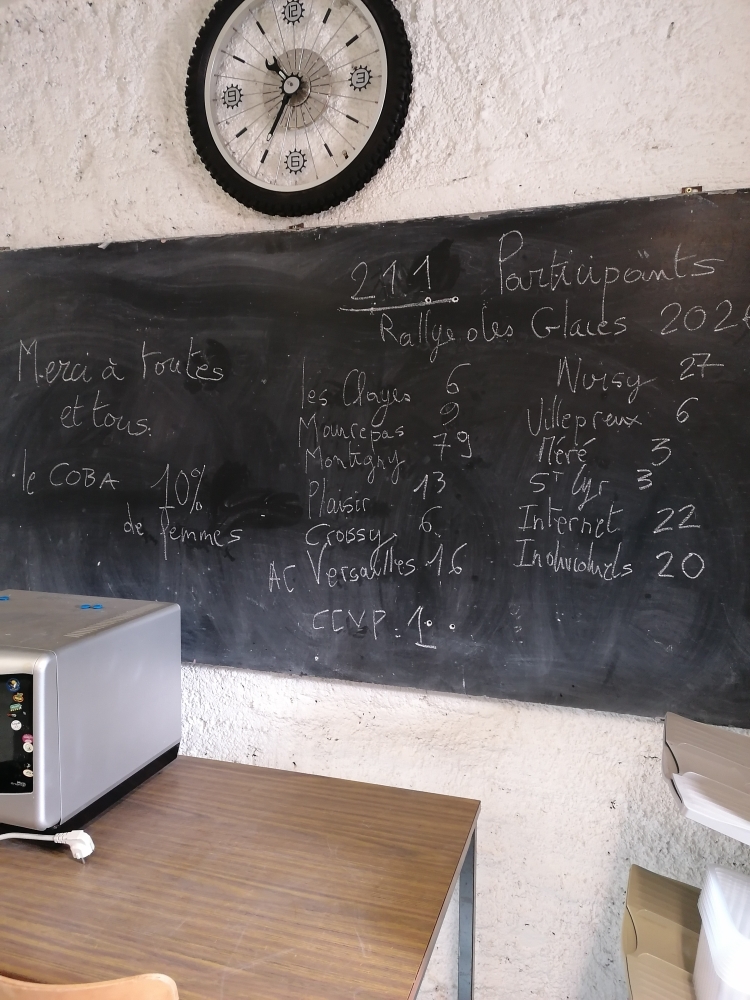 12
3
9
6
211 Participants
Rallye des Glaces 202
Merci à toutes
et tous.
le COBA 10%
de femmes
les Clayes 6
Maurepas 9
Montigny 79
Plaisir 13
Croissy 6
AC Versailles 16
CCVP : 1
Noisy 27
Villepreux 6
Méré 3
ST Cyr 3
Internet 22
Individuels 20